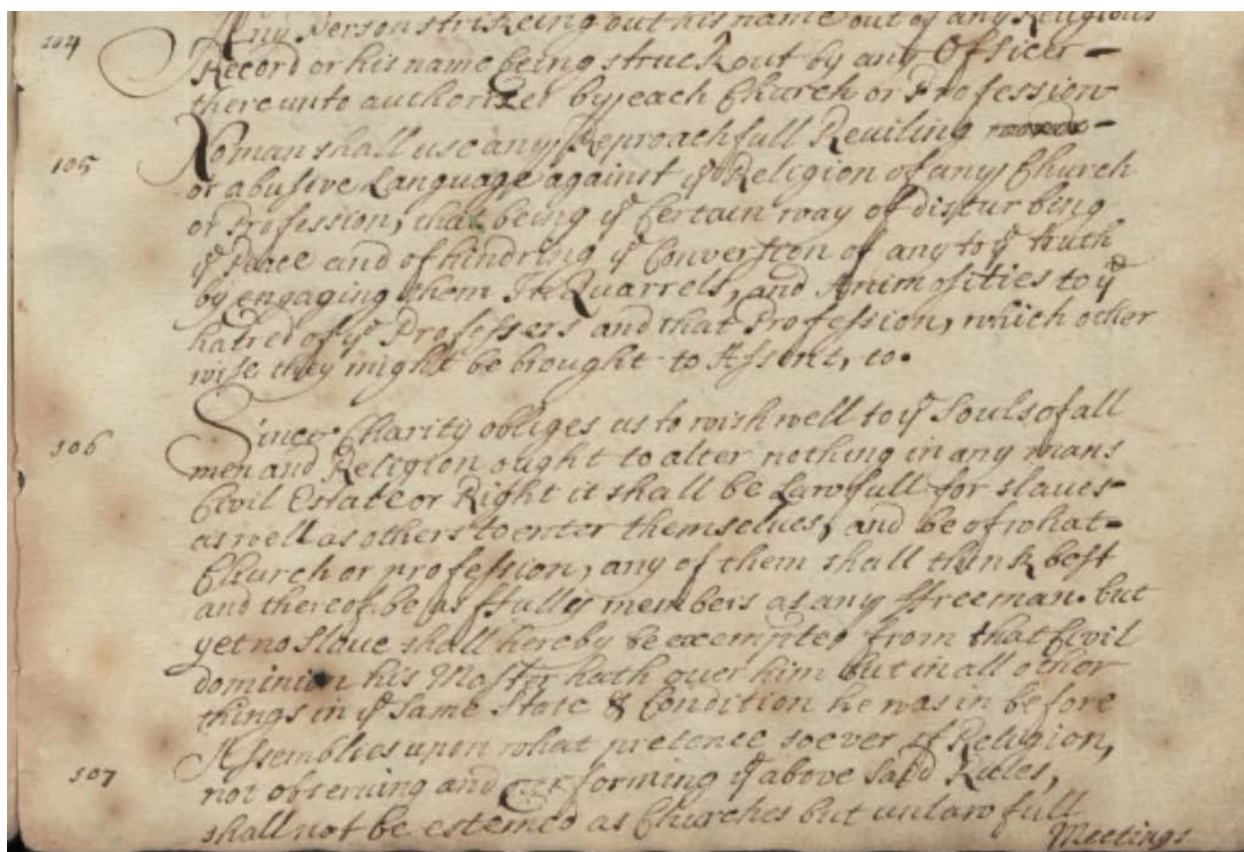 104 Any Person strikeing out his name out of any Religious
Record or his name being struck out by any Officer
thereunto authorized by each Church or Profession
105 Noman shall use any Reproachfull Reuiling
or abusive Language against yᵉ Religion of any Church
or Profession, that being yᵉ Certain way of disturbing
yᵉ Peace and of hindring yᵉ Conversion of any to yᵉ truth
by engaging them In Quarrels, and Animosities to yᵉ
hatred of yᵉ Professers and that Profession, which other
wise they might be brought to Assent, to.
106 Since Charity obliges us to wish well to yᵉ Souls of all
men and Religion ought to alter nothing in any mans
Civil Estate or Right it shall be Lawfull for slaues
as well as others to enter themselues, and be of what
Church or profession, any of them shall think best
and thereof be as ffully members as any ffreeman. but
yet no Slaue shall hereby be exempted from that Civil
dominion his Master hath ouer him but in all other
things in yᵉ Same State & Condition he was in before
107 Assemblies upon what pretence soever of Religion,
not obseruing and performing yᵉ above Said Rules,
shall not be estemed as Churches but unlawfull
Meetings